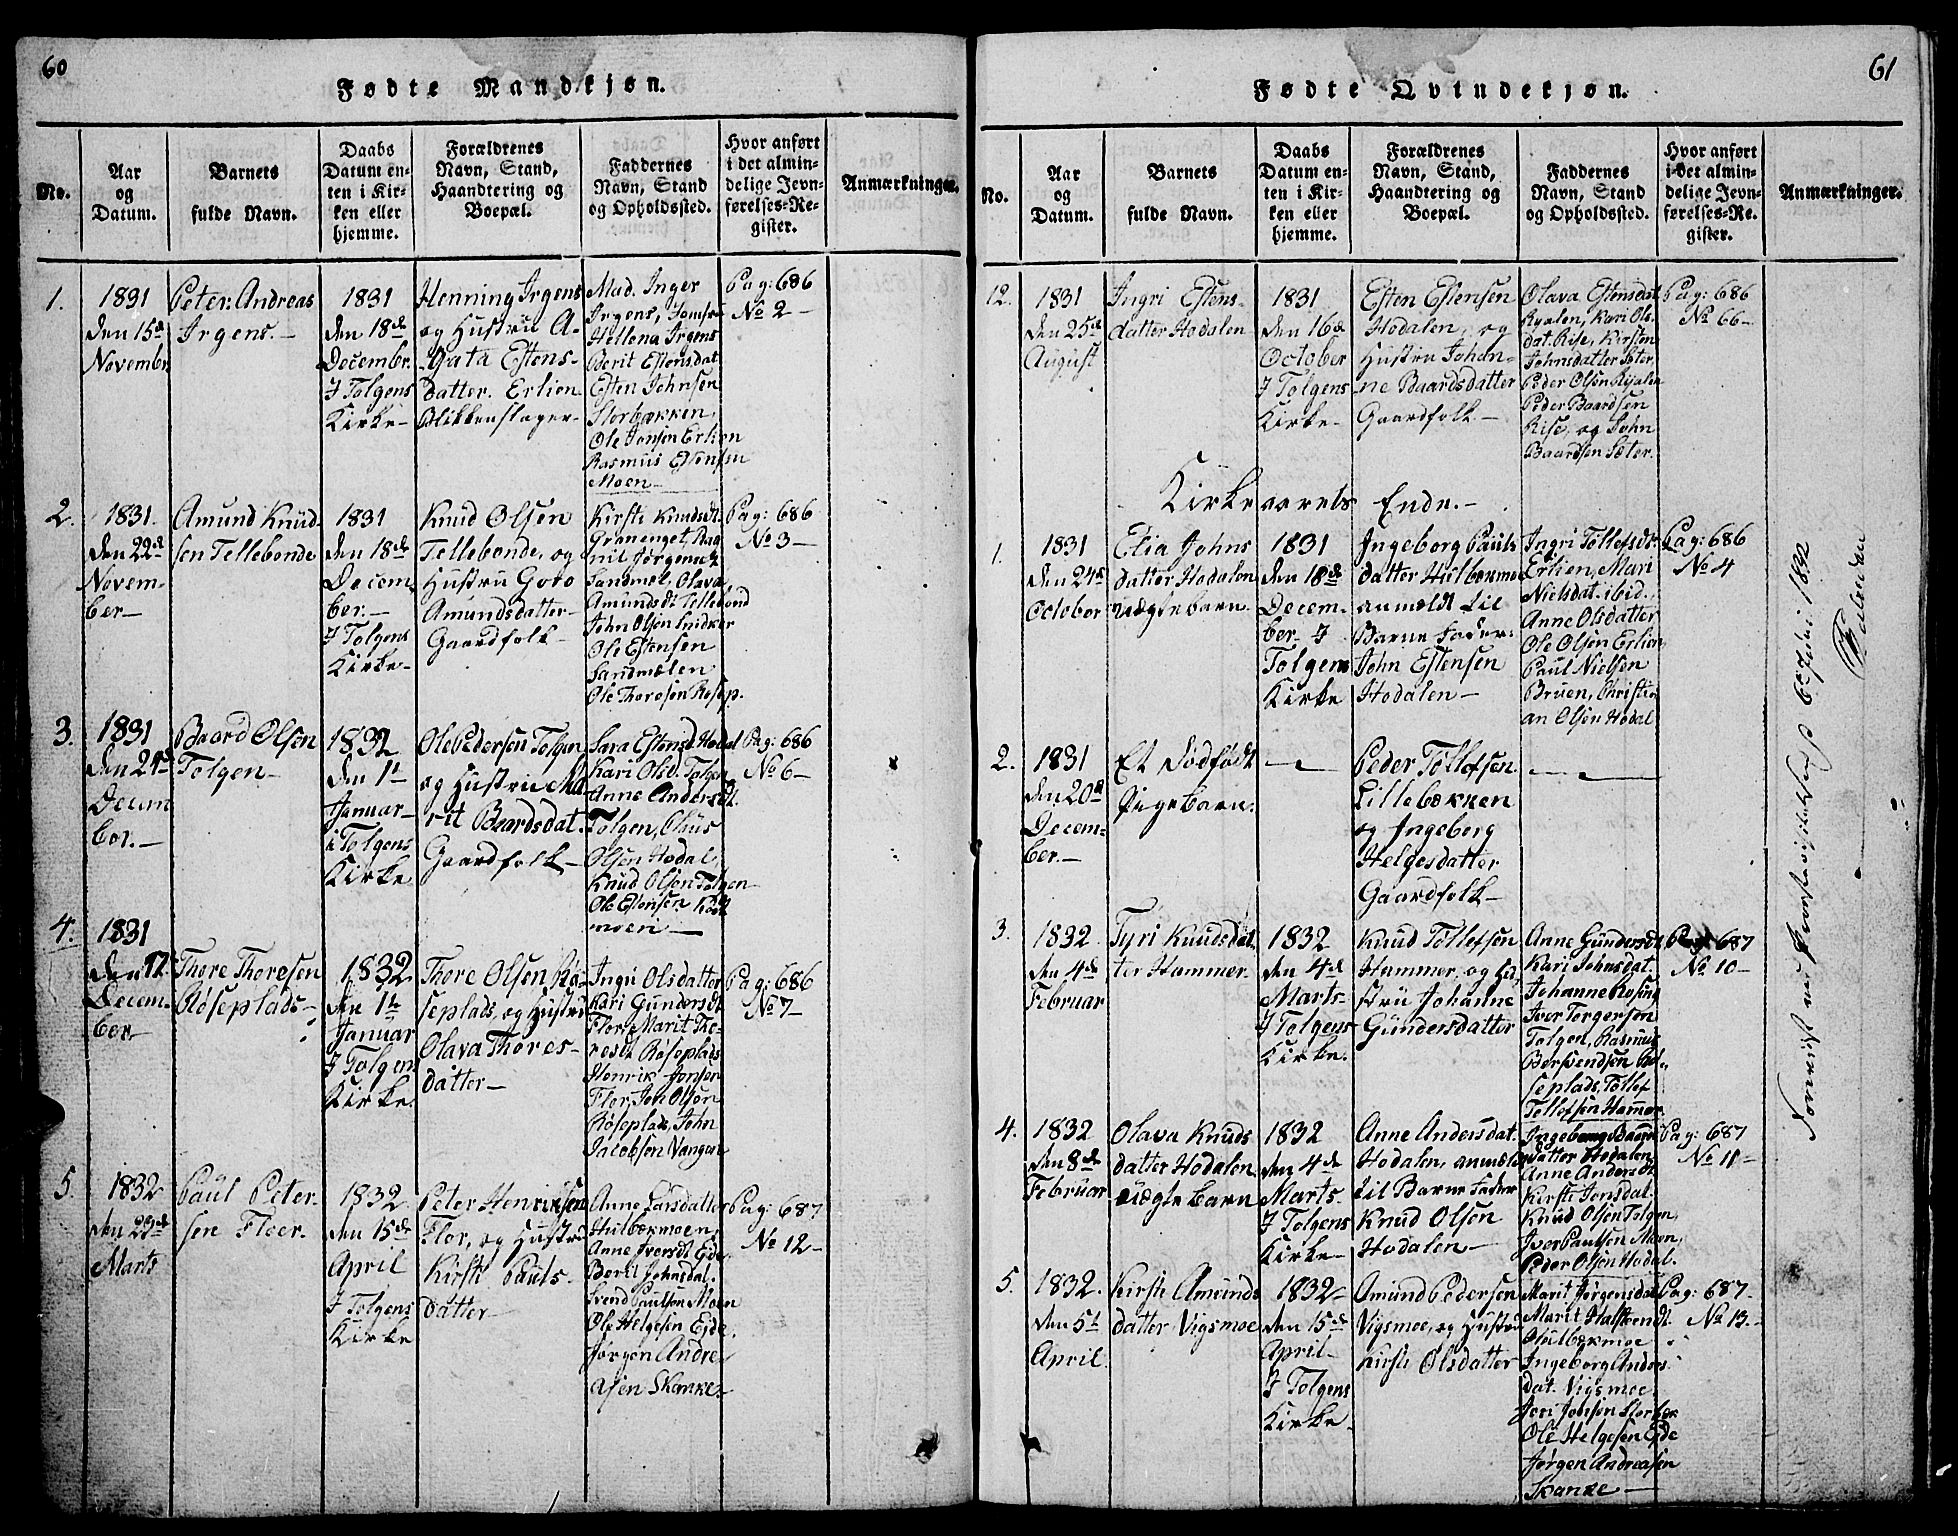 60
Fødte Mandkjøn.
No.
Aar
og
Datum.
Barnets
fulde Navn.
Daabs
Datum en-
ten i Kir-
ken eller
hjemme.
Forældrenes
Navn, Stand,
Haandtering og
Boepæl.
Faddernes
Navn, Stand
og Opholdssted.
Hvor anført
i det almin-
delige Jevn-
førelses-Re-
gister.
Anmærkninger.
1.
1831
den 15de
Novembr.
Peter Andreas
Irgens.-
1831
den 18de
Decembr.
I Tolgens
Kirke-
Henning Irgens
og Hustru A-
gata Estens-
datter. Erlien
Blikkenslager-
Mad. Inger
Irgens, Jomfr
Hellena Irgens
Berit Estensdat
Esten Johnsen
Storbækken,
Ole Jonsen Erlien
Rasmus Estensen
Moen-
Pag: 686
No 2-
2.
1831.
den 22de
Novem-
ber-
Amund Knud-
sen Tellebonde
1831
den 18de
Decem-
ber.-
I Tolgens
Kirke-
Knud Olsen
Tellebonde, og
Hustru Goro
Amundsdatter-
Gaardfolk-
Kirsti Knudsdt.
Granenget, Rag
nil Jørgensdt
Sandmæl, Olava
Amundsdt Tellebond
John Olsen Snidker
Ole Estensen
Sandmælen
Ole Thoresen Røsep.
Pag: 686
No 3-
3.
1831
den 24de
Decem
ber.-
Baard Olsen
Tolgen-
1832
den 1t
Januar-
i Tolgens
Kirke
Ole Pedersen Tolgen
og Hustru Ma
rit Baardsdat.
Gaardfolk-
Sara Estensd Hodal
Kari Olsd. Tolgen
Anne Andersdt.
Tolgen, Oluus
Olsen Hodal,
Knud Olsen Tolgen
Ole Estensen Kaas
moen-
Pag: 686
No 6-
4.
1831
den 17de
Decem-
ber-
Thore Thoresen
Røseplads-
1832
den 1t
Januar
I Tolgens
Kirke.
Thore Olsen Rø-
seplads, og Hustru
Olava Thores-
datter-
Ingri Olsdatter
Kari Gundersdt
Flor, Marit Tho-
resdt Røseplads
Henrik Jonsen
Flor, Jon Olsen
Røseplads, John
Jacobsen Vangen
Pag: 686
No 7-
5.
1832
den 23de
Marts
Paul Peter-
sen Floer.
1832.
den 15de
April
I Tolgens
Kirke
Peter Henriksen
Flor, og Hustru
Kirsti Pauls-
datter-
Anne Larsdatter
Hulbækmoen,
Anne Iversdt Eide
Berit Johnsdat.
Svend Paulsen Moen
Ole Helgesen Ejde.
Jørgen Andre-
asen Skanke-
Pag: 687
No 12-
61
Fødte Qvindekjøn.
No.
Aar
og
Datum.
Barnets
fulde Navn.
Daabs
Datum en-
ten i Kir-
ken eller
hjemme.
Forældrenes
Navn, Stand,
Haandtering og
Boepæl.
Faddernes
Navn, Stand
og Opholdssted.
Hvor anført
i det almin-
delige Jevn-
førelses-Re-
gister.
Anmærkninger.
12.
1831
den 25de
August
Ingri Estens-
datter Hodalen
1831
den 16de
October
I Tolgens
Kirke-
Esten Estensen
Hodalen, og
Hustru Johan-
ne Baardsdatter
Gaardfolk-
Olava Estensdat
Ryalen, Kari Ols-
dat. Rise, Kirsten
Johnsdatter Sæter
Peder Olsen Ryalen
Peder Baardsen
Rise, og John
Baardsen Sæter.
Pag: 686
No 66-
Kirkeaarets Ende.-
1.
1831
den 24de
October
Elia Johns
datter Hodalen
uægtebarn.
1831
den 18de
Decem-
ber- I
Tolgens
Kirke
Ingeborg Pauls
datter Hulbækmoe
anmældt til
Barne Fader:
John Estensen
Hodalen-
Ingri Tollefsdt
Erlien, Mari
Nielsdat. ibid.,
Anne Olsdatter
Ole Olsen Erlien
Paul Nielsen
Bruen, Christi-
an Olsen Hodal
Pag: 686
No 4
2.
1831
den 20de
Decem-
ber.-
Et dødfødt
Pigebarn.
Peder Tollefsen
Lillebækken
og Ingeborg
Helgesdatter
Gaardfolk-
3.
1832.
den 4de
Februar
Tyri Knudsdat
ter Hammer.
1832
den 4de
Marts-
I Tolgens
Kirke.
Knud Tollefsen
Hammer, og Hu
stru Johanne
Gundersdatter
Anne Gundersdt.
Kari Johnsdat.
Johanne Rosing
Iver Torgersen
Tolgen, Rasmus
Bersvendsen Rø-
seplads, Tollef
Tollefsen Hammer
Pag: 687
No 10-
4.
1832
den 8de
Februar
Olava Knuds
datter Hodalen
uægtebarn
1832
den 4de
Marts-
I Tolgens
Kirke-
Anne Andersdat.
Hodalen, anmældt
til Barne Fader
Knud Olsen
Hodalen-
Ingeborg Baards
datter Hodalen
Anne Andersdt.
Kirsti Jonsdal.
Knud Olsen Tolgen,
Iver Paulsen Moen,
Peder Olsen Hodal.
Pag: 687
No 11-
5.
1832.
den 5t
April.
Kirsti Amunds
datter Vigsmoe
1832-
den 15de
April-
I Tolgens
Kirke-
Amund Pedersen
Vigsmoe, og Hustru
Kirsti Olsdatter
Marit Jørgensdat
Marit Halsteendt.
Hulbækmoe
Ingeborg Anders
dat. Vigsmoe
Jon Jonsen Storbæk
Ole Helgesen Ejde
Jørgen Andreasen
Skanke-
Pag: 687-
No 13-